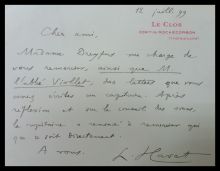 12 juill. 99
LE CLOS
PORT-DE-ROCHECORBON
Cher ami,
Madame Dreyfus me charge de
vous remercier, ainsi que M.
l'abbé Viollet, des lettres que vous
avez écrites au capitaine. Après
réflexion et sur le conseil des siens,
le capitaine a renoncé à remercier qui
que ce soit directement.
A vous.
L Havet